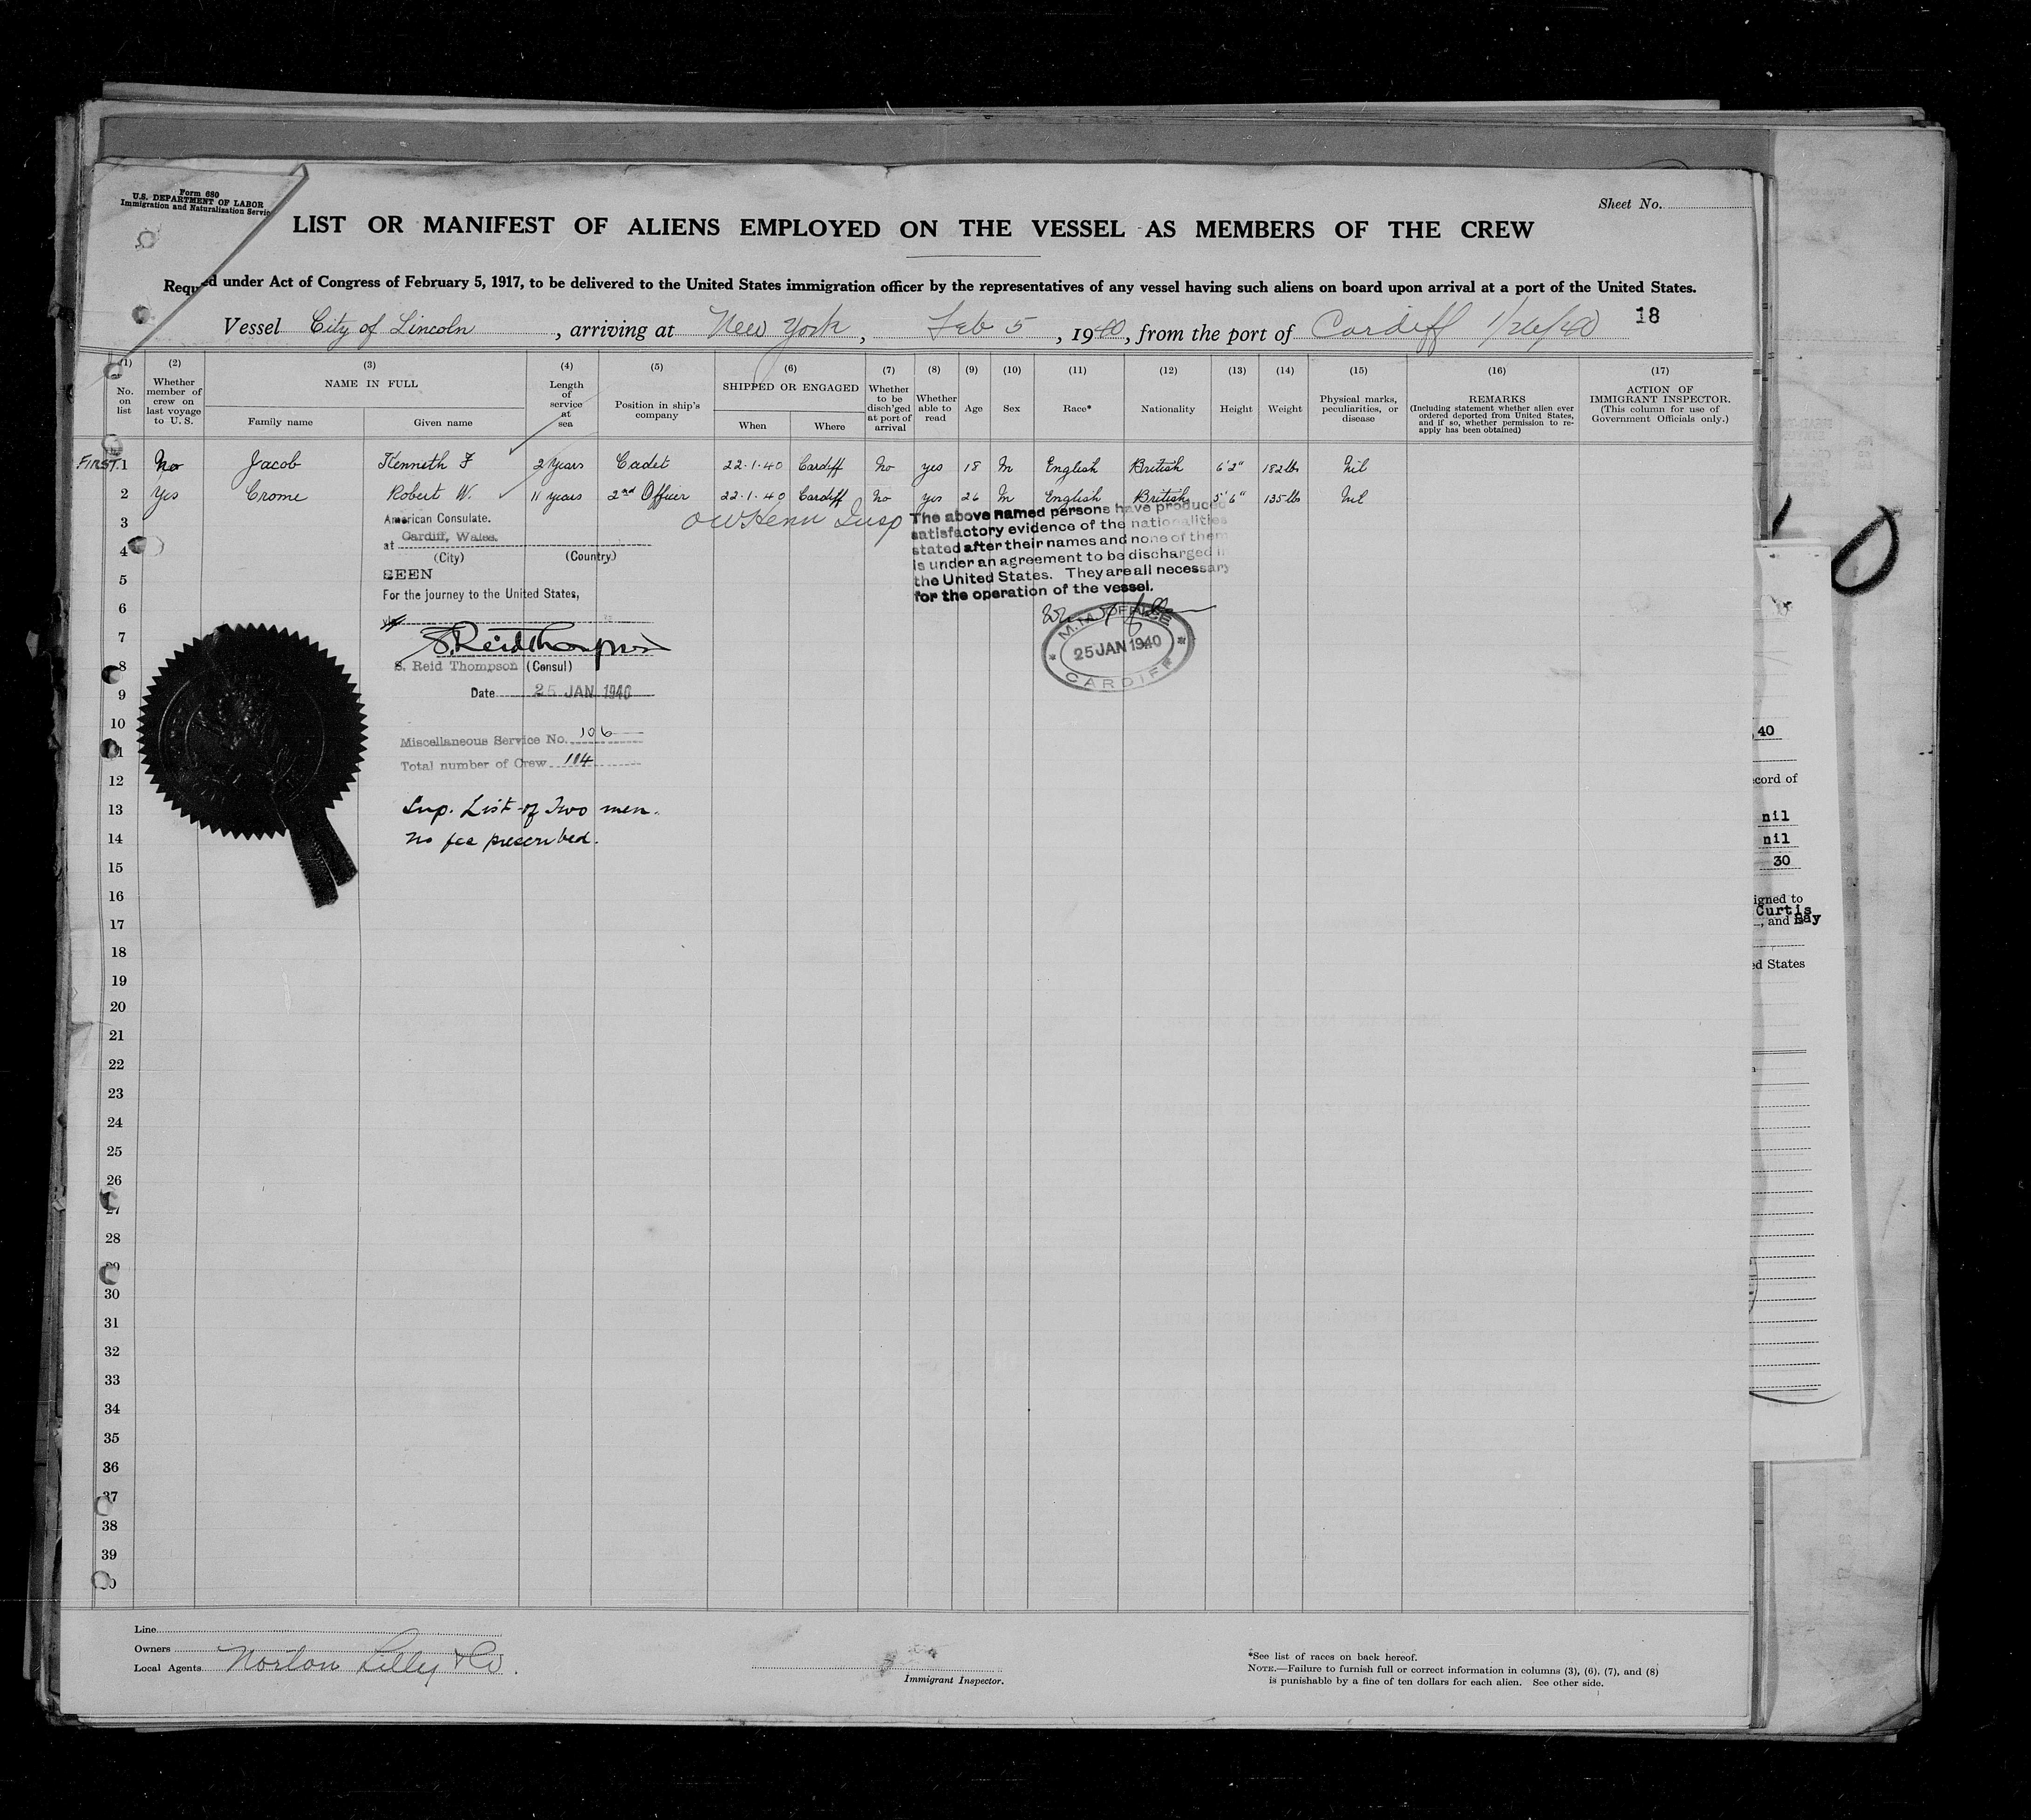 Form 680
U.S. DEPARTMENT OF LABOR
Immigration and Naturalization Servic
Sheet No.
LIST OR MANIFEST OF ALIENS EMPLOYED ON THE VESSEL AS MEMBERS OF THE CREW
Requ ed under Act of Congress of February 5, 1917, to be delivered to the United States immigration officer by the representatives of any vessel having such aliens on board upon arrival at a port of the United States.
Vessel City of Lincoln, arriving at New York, Feb 5, 1940, from the port of Cardiff 1/26/40 18
(1) No. on list
(2) Whether member of crew on last voyage to U. S.
(3) NAME IN FULL
Family name Given name
(4) Length of service at sea
(5) Position in ship's company
(6) SHIPPED OR ENGAGED
When Where
(7) Whether to be disch'ged at port of arrival
(8) Whether able to read
(9) Age
(10) Sex
(11) Race*
(12) Nationality
(13) Height
(14) Weight
(15) Physical marks, peculiarities, or disease
(16) REMARKS (Including statement whether alien ever ordered deported from United States, and if so, whether permission to re-apply has been obtained)
(17) ACTION OF IMMIGRANT INSPECTOR. (This column for use of Government Officials only.)
FIRST. 1 No Jacob Kenneth F 2 years Cadet 22·1·40 Cardiff No yes 18 M English British 6'2" 182 lbs Nil
2 Yes Crome Robert W. 11 years 2nd Officer 22·1·40 Cardiff No yes 26 M English British 5'6" 135 lbs Nil
3
4
5
6
7
8
9
10
11
12
13
14
15
16
17
18
19
20
21
22
23
24
25
26
27
28
29
30
31
32
33
34
35
36
37
38
39
American Consulate.
at Cardiff, Wales.
(City) (Country)
SEEN
For the journey to the United States,
S. Reid Thompson
S. Reid Thompson (Consul)
Date 25 JAN 1940
Miscellaneous Service No. 106
Total number of Crew 114
Sup. List of Two men.
No fee prescribed.
Insp
The above named persons have produced
satisfactory evidence of the nationalities
stated after their names and none of them
is under an agreement to be discharged in
the United States. They are all necessary
for the operation of the vessel.
OFFICE
25 JAN 1940
CARDIFF
40
ecord of
nil
nil
30
igned to
Curtis
, and Bay
ed States
Line
Owners
Local Agents Norton Lilly & Co.
Immigrant Inspector.
*See list of races on back hereof.
NOTE.—Failure to furnish full or correct information in columns (3), (6), (7), and (8)
is punishable by a fine of ten dollars for each alien. See other side.